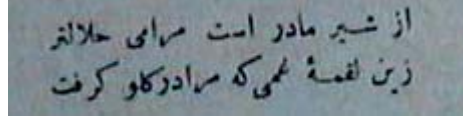 از شیر مادر است مرامی حلالتر
زین لقمهٔ غمی که مرا در گلو گرفت